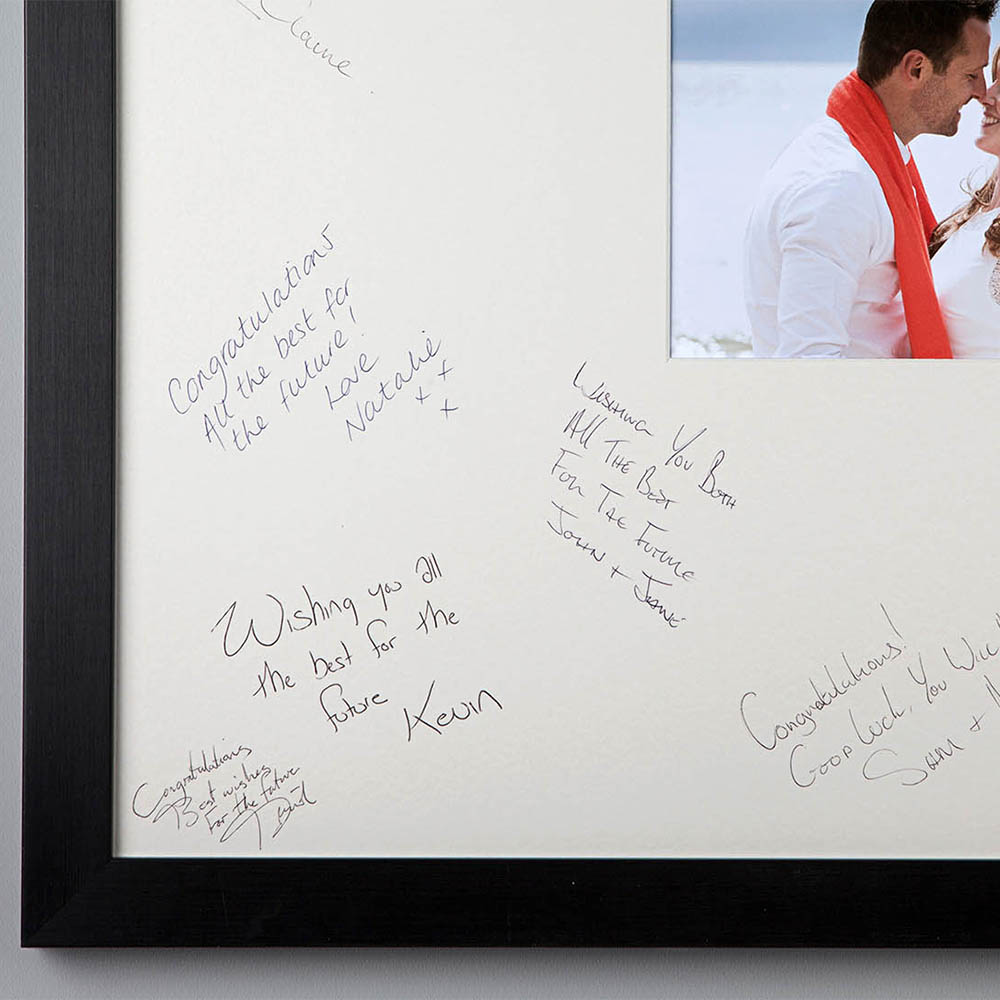 Elaine
Congratulations
All the best for
the future!
Love
Natalie
x x x
Wishing You Both
All The Best
For The Future
John + Jane
Wishing you all
the best for the
future
Kevin
Congratulations!
Good Luck, You Will
Sam +
Congratulations
Best wishes
For the future
David